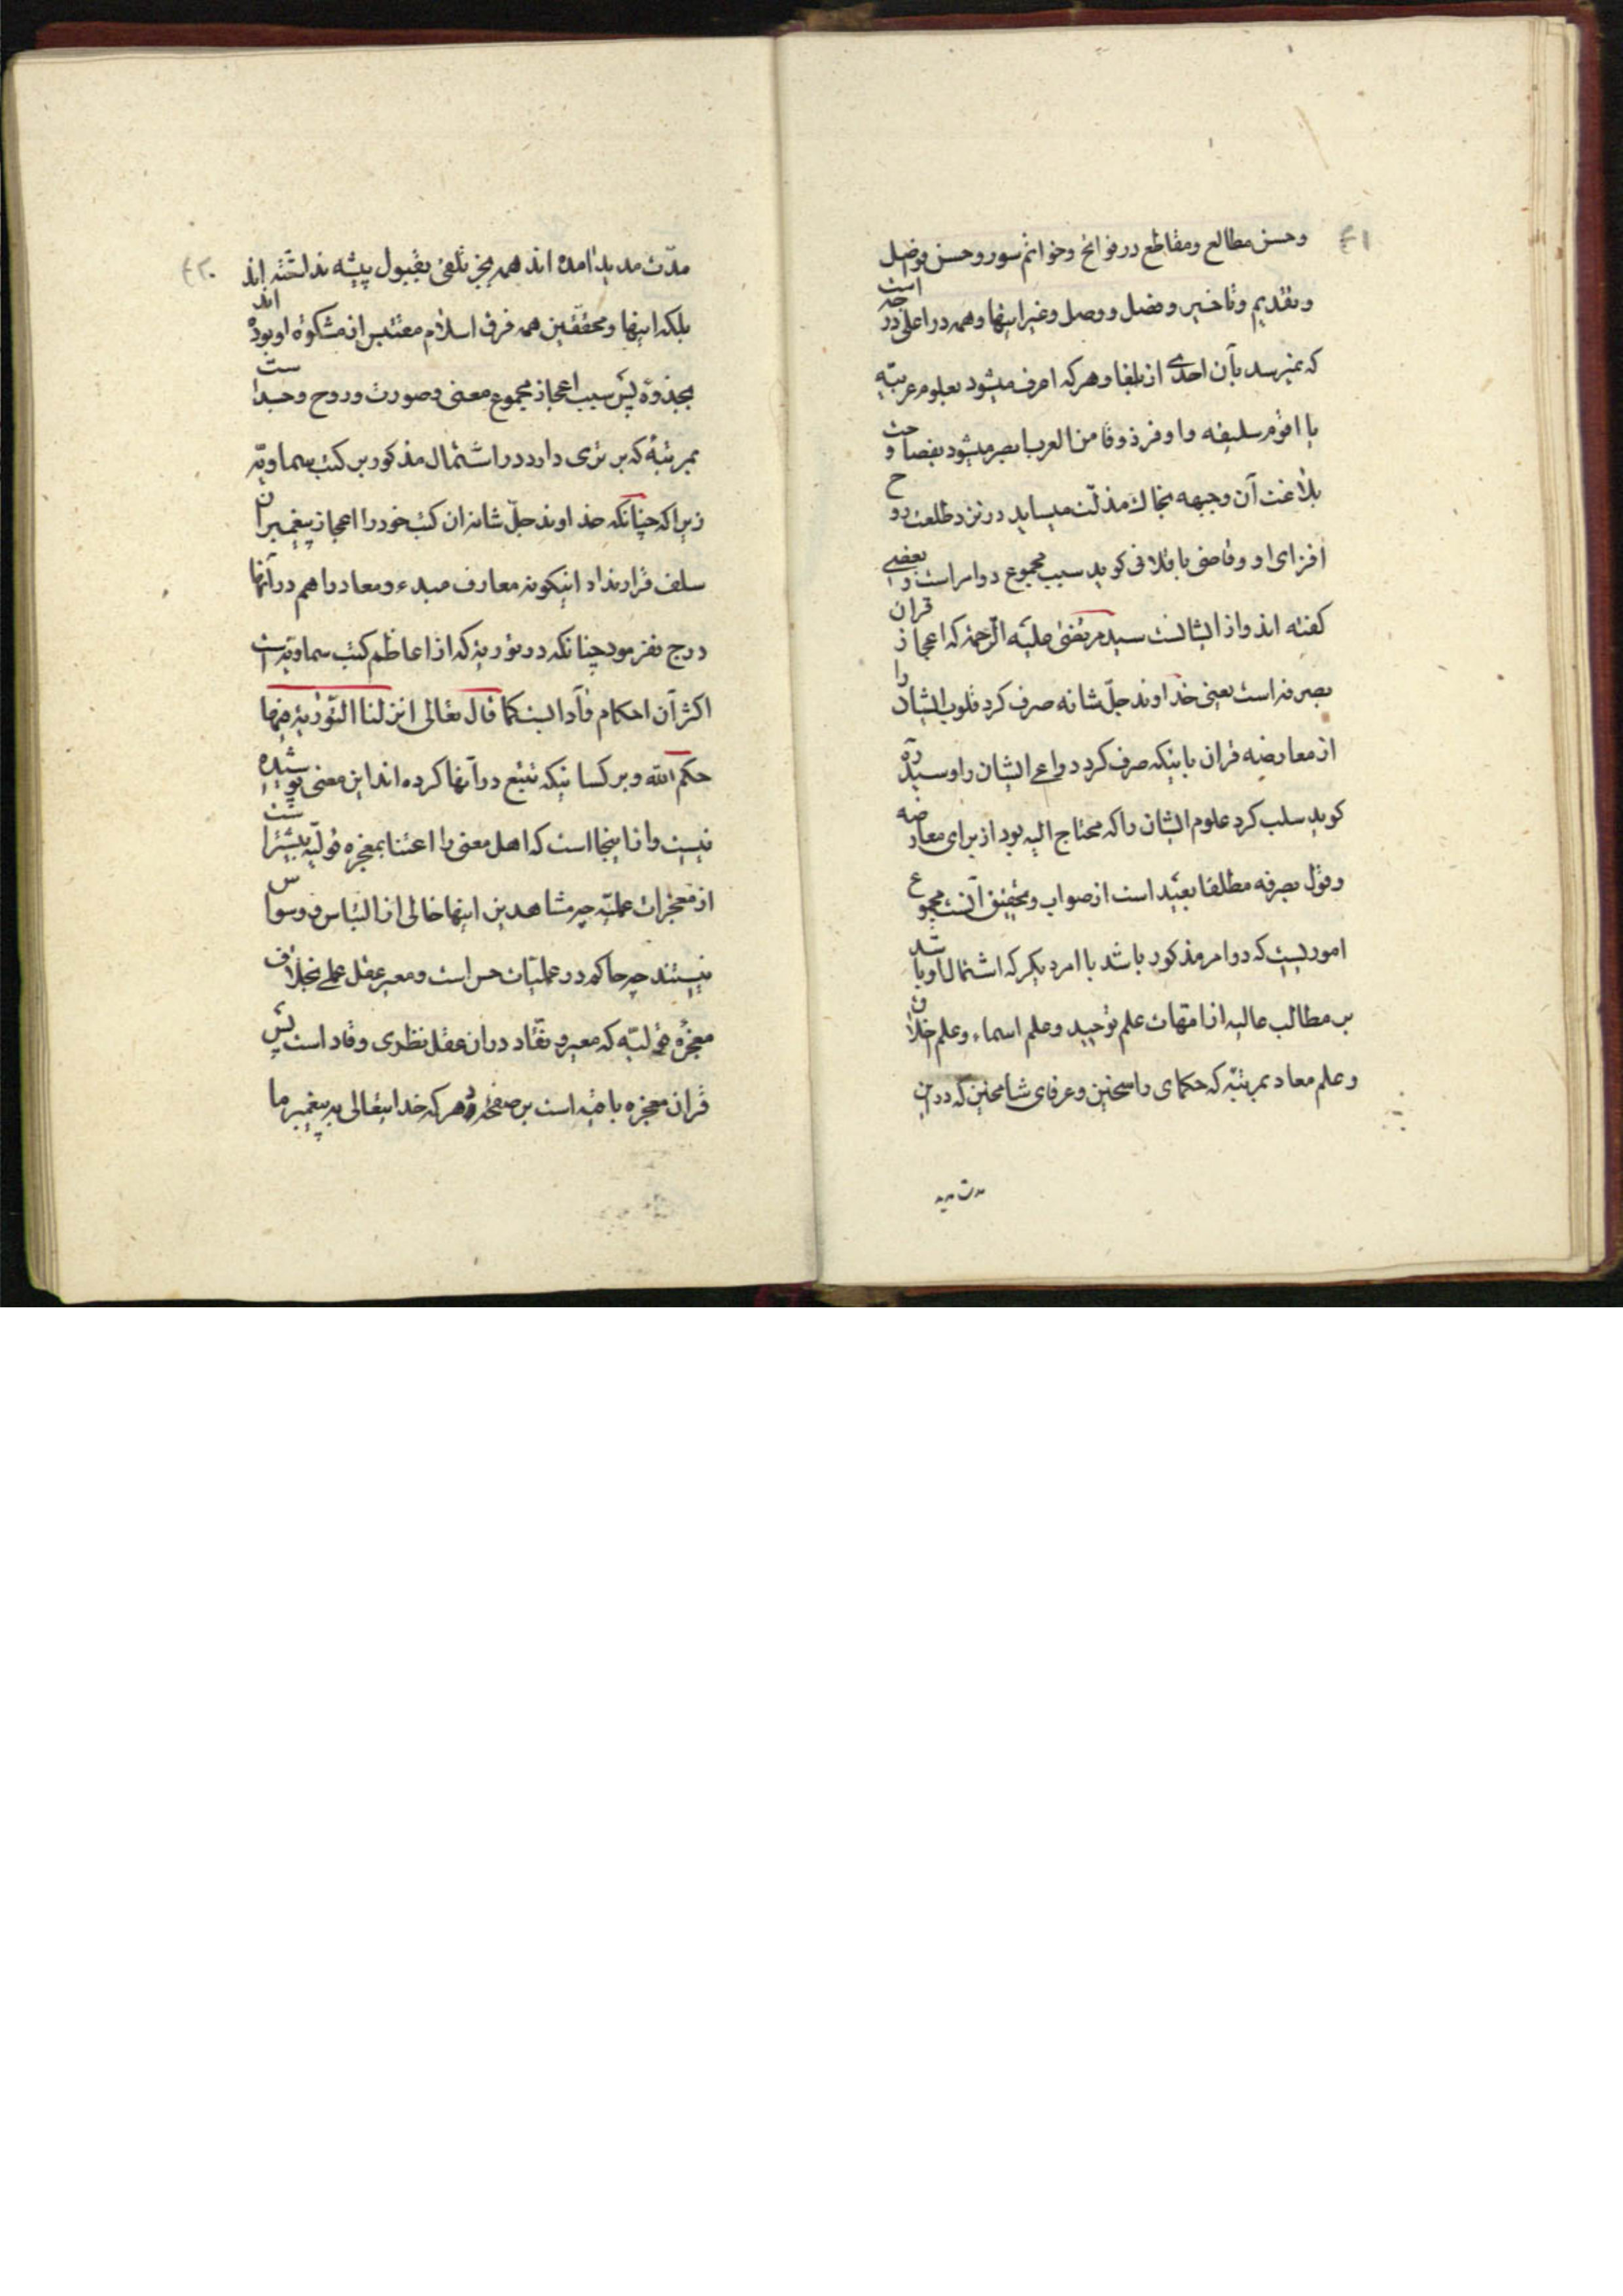 ۴۱
وحسن مطالع ومقاطع در فواتح وخواتم سور وحسن فواصل
وتقدیم وتاخیر وفصل ووصل وغیر اینها وهمه در اعلی درجه است
که نمیرسد بآن احدی از بلغا وهرکه اعرف میشود بعلوم عربیّه
یا اقوم سلیقه واوفر ذوقا من العرب ابصر میشود بفصاحت و
بلاغت آن وجبهه بخاك مذلّت میساید در نزد طلعت روح
افزای او وقاضی باقلانی کوید سبب مجموع دو امر است وبعضی
کفته اند واز ایشانست سید مرتضی علیه الرّحمه که اعجاز قران
بصرفه است یعنی خداوند جلّ شانه صرف کرد قلوب ایشان را
از معارضه قران باینکه صرف کرد دواعی ایشان را وسید ره
کوید سلب کرد علوم ایشان را که محتاج الیه بود از برای معارضه
وقول بصرفه مطلقا بعید است از صواب وتحقیق آنست مجموع
اموریست که دو امر مذکور باشد با امر دیکر که اشتمال او باشد
بر مطالب عالیه از امّهات علم توحید وعلم اسماء وعلم اخلاق
وعلم معاد بمرتبّه که حکمای راسخین وعرفای شامخین که در این
مدت مدید
۴۲
مدّت مدید امده اند همه بجز تلقی بقبول پیشه نداشته اند
بلکه اینها ومحققّین همه فرق اسلام مقتبس از مشکوة او بوده اند
بجذوة پس سبب اعجاز مجموع معنی وصورت وروح وجسد است
بمرتبهٔ که برتری دارد در اشتمال مذکور بر کتب سماویّه
زیرا که چنانکه خداوند جلّ شانه ان کتب خود را اعجاز پیغمبران
سلف قرار نداد اینکونه معارف مبدء ومعاد را هم در آنها
درج نفرمود چنانکه در توریة که از اعاظم کتب سماویّه است
اکثر آن احکام وآدابست کما قال تعالی انزلنا التّوریة فیها
حکم الله وبر کسانیکه تتبّع در آنها کرده اند این معنی پوشیده
نیست واز اینجا است که اهل معنی را اعتنا بمعجزه قولیّه بیشتر است
از معجزات عملیّه چه مشاهدین اینها خالی از التباس ووسواس
نیستند چه حاکم در عملیّات حس است ومعبر عقل عملی بخلاف
معجزهٔ قولیّه که معبر ونقّاد در ان عقل نظری وقاد است پس
قران معجزه باقیه است بر صفحهٔ دهر که خدایتعالی به پیغمبر ما